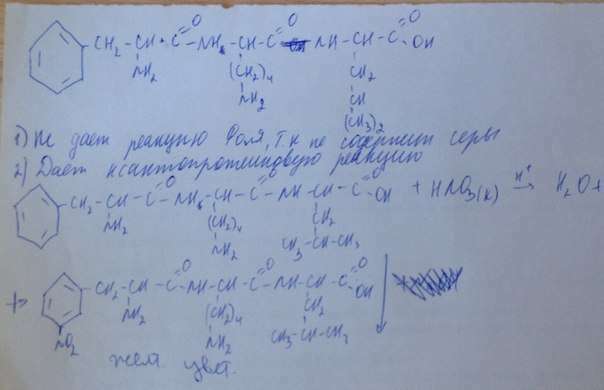 CH₂ - CH - C - NH - CH - C - NH - CH - C
O O O
OH
NH₂ (CH₂)₄ CH₂
NH₂ CH
(CH₃)₂
1) Не дает реакцию Фоля, т.к не содержит серы
2) Дает ксантопротеиновую реакцию
CH₂ - CH - C - NH - CH - C - NH - CH - C OH + HNO₃(к) H⁺ → H₂O +
O O O
NH₂ (CH₂)₄ CH₂
NH₂ CH₃-CH-CH₃
+> CH₂ - CH - C - NH - CH - C - NH - CH - C OH ↓
O O O
NH₂ (CH₂)₄ CH₂
NO₂ NH₂ CH₃-CH-CH₃
жел. цвет.